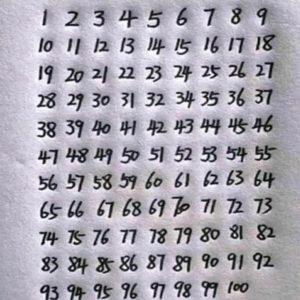 1 2 3 4 5 6 7 8 9
10 11 12 13 14 15 16 17 18
19 20 21 22 23 24 25 26 27
28 29 30 31 32 34 35 36 37
38 39 40 41 42 43 44 45 46
47 48 49 50 51 52 53 54 55
56 57 58 59 60 61 62 63 64
65 66 67 68 69 70 71 72 73
74 75 76 77 78 79 80 81 82
83 84 85 86 87 89 90 91 92
93 94 95 96 97 98 99 100